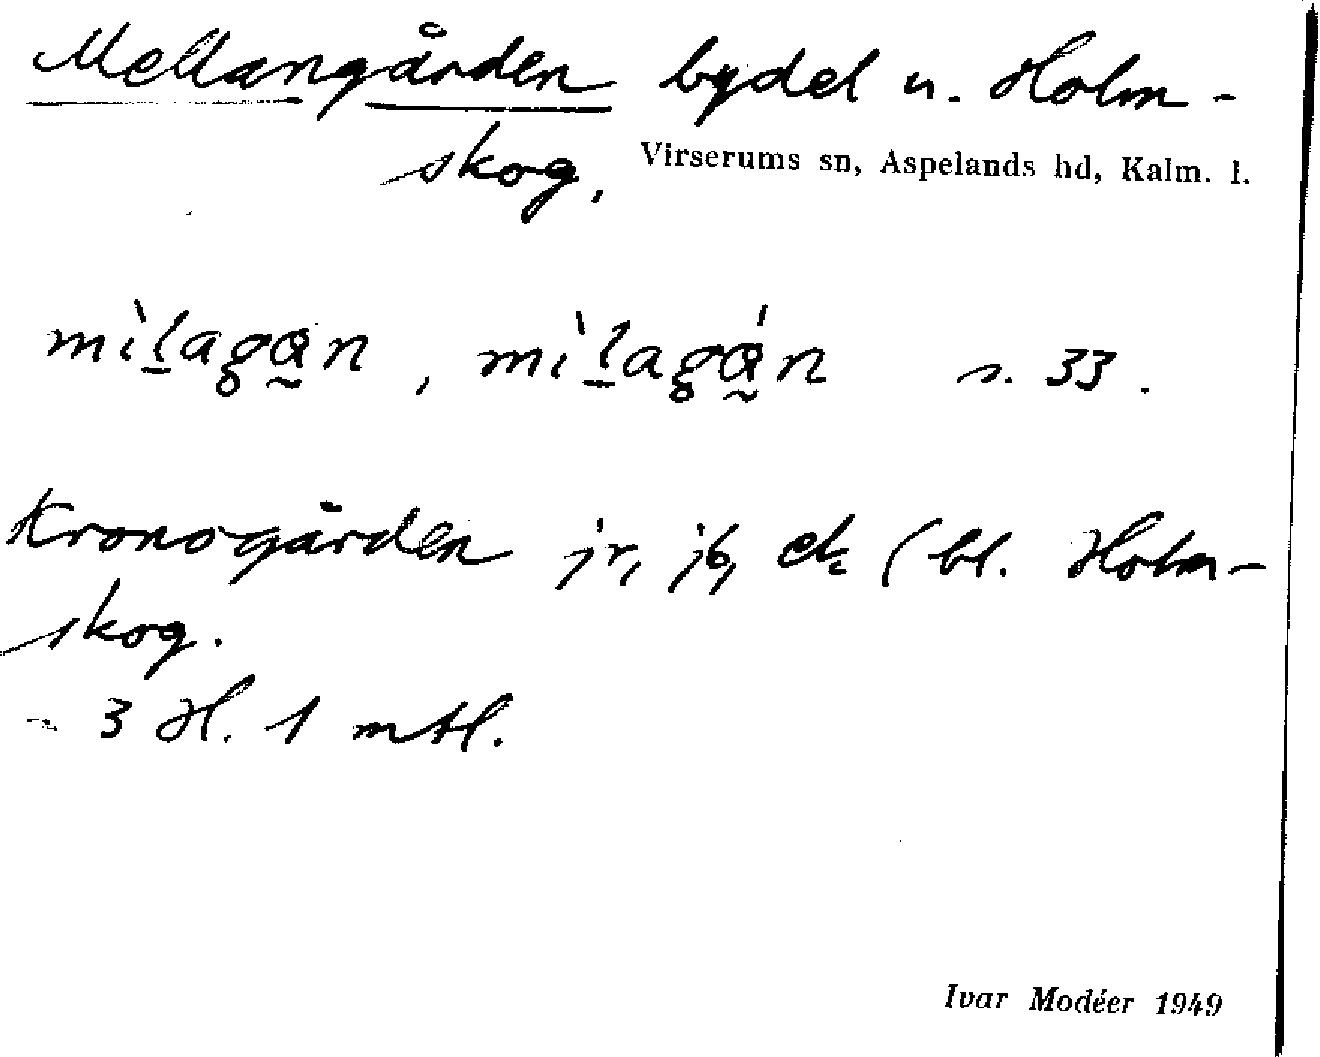 Mellangården bydel u. Holm-
skog, Virserums sn, Aspelands hd, Kalm. l.
mìlagạn, mìlagạ́n s. 33.
Kronogården jr, jb, ek (bl. Holm-
skog.
- 3 Hl. 1 mtl.
Ivar Modéer 1949